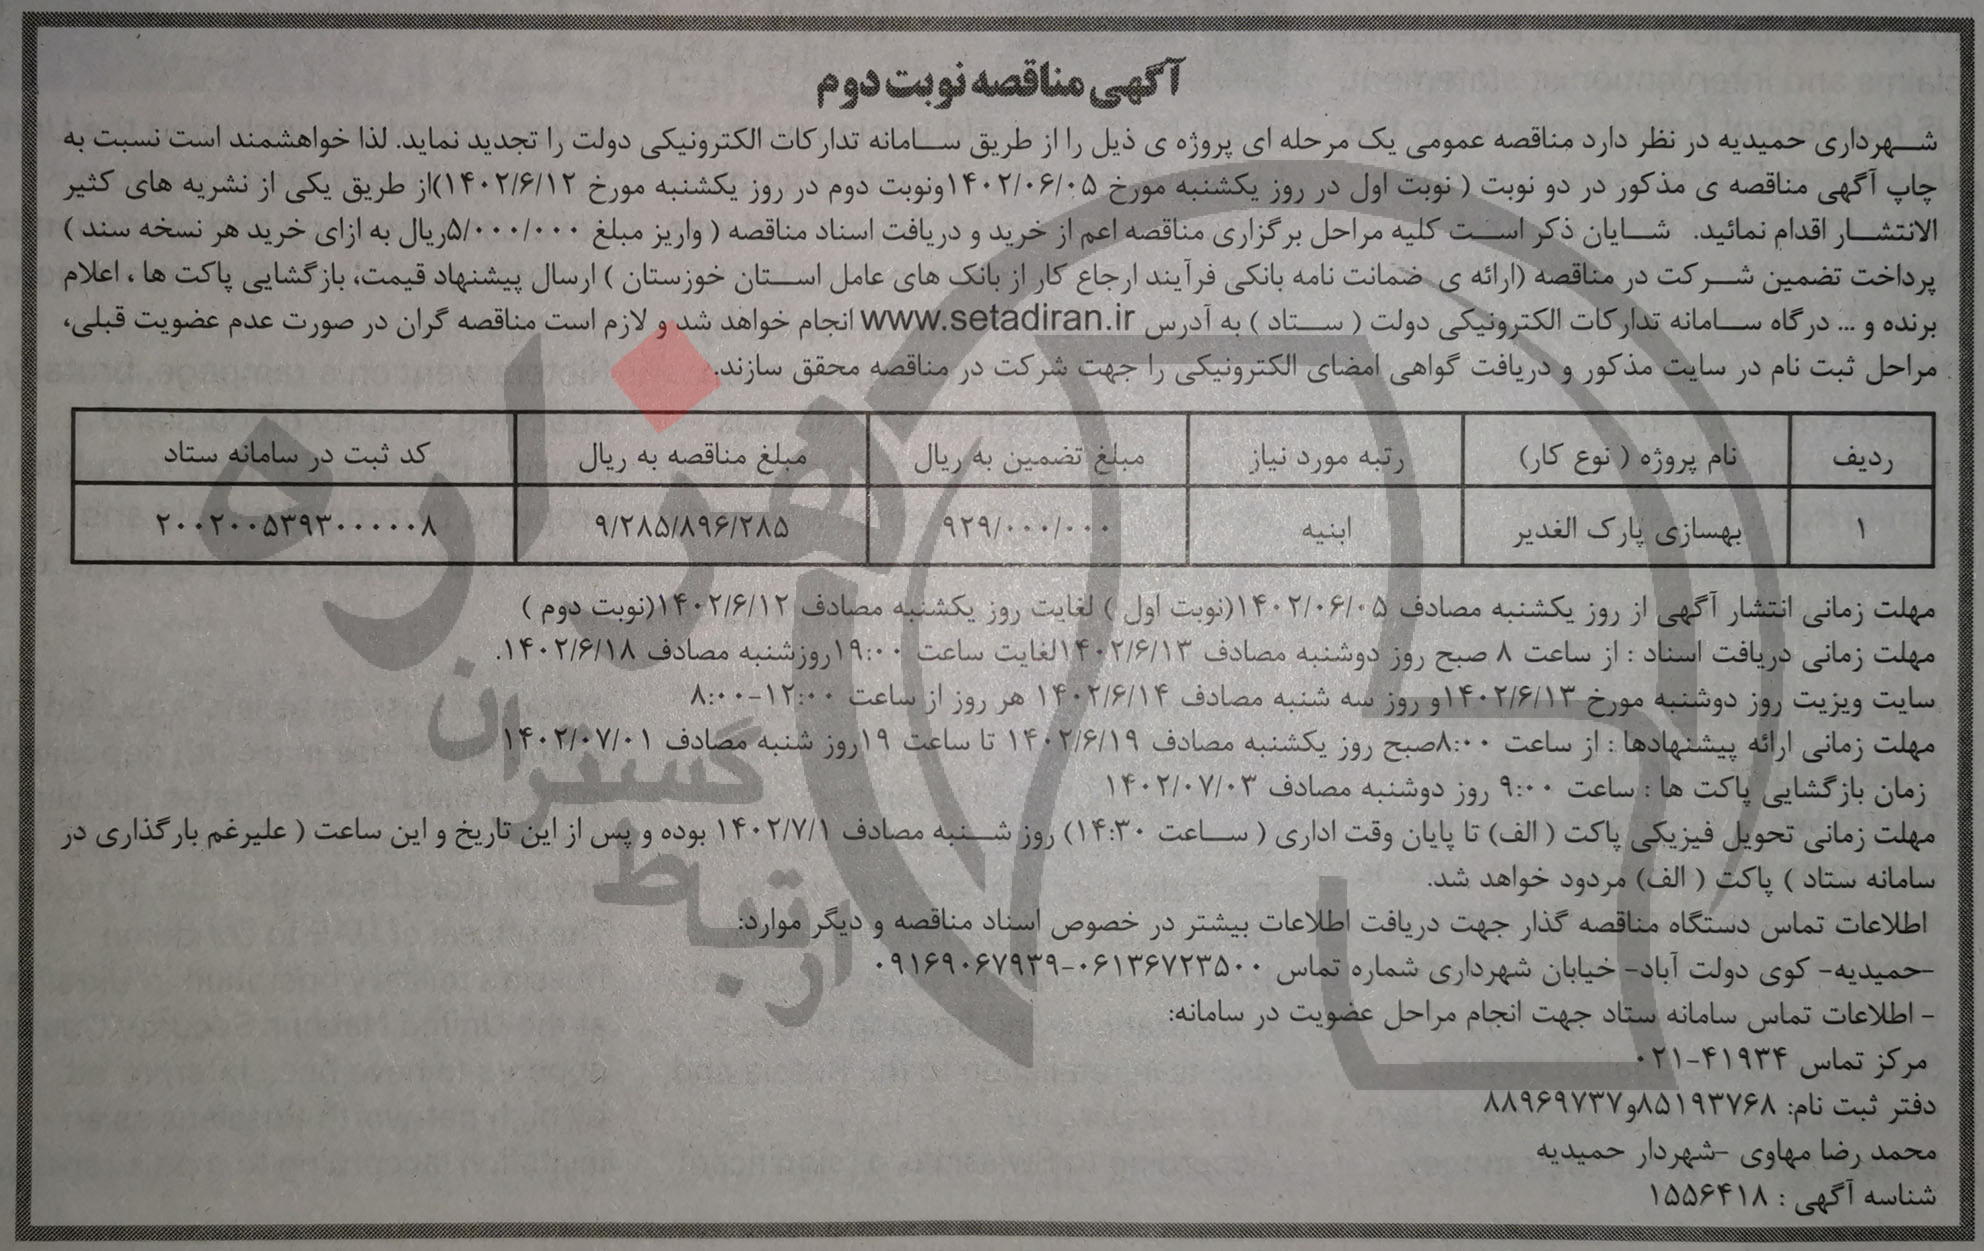 آگهی مناقصه نوبت دوم
شهرداری حمیدیه در نظر دارد مناقصه عمومی یک مرحله ای پروژه ی ذیل را از طریق سامانه تدارکات الکترونیکی دولت را تجدید نماید. لذا خواهشمند است نسبت به
چاپ آگهی مناقصه ی مذکور در دو نوبت ( نوبت اول در روز یکشنبه مورخ ۱۴۰۲/۰۶/۰۵ونوبت دوم در روز یکشنبه مورخ ۱۴۰۲/۶/۱۲)از طریق یکی از نشریه های کثیر
الانتشار اقدام نمائید. شایان ذکر است کلیه مراحل برگزاری مناقصه اعم از خرید و دریافت اسناد مناقصه ( واریز مبلغ ۵/۰۰۰/۰۰۰ریال به ازای خرید هر نسخه سند )
پرداخت تضمین شرکت در مناقصه (ارائه ی ضمانت نامه بانکی فرآیند ارجاع کار از بانک های عامل استان خوزستان ) ارسال پیشنهاد قیمت، بازگشایی پاکت ها ، اعلام
برنده و ... درگاه سامانه تدارکات الکترونیکی دولت ( ستاد ) به آدرس www.setadiran.ir انجام خواهد شد و لازم است مناقصه گران در صورت عدم عضویت قبلی،
مراحل ثبت نام در سایت مذکور و دریافت گواهی امضای الکترونیکی را جهت شرکت در مناقصه محقق سازند.
ردیف نام پروژه ( نوع کار) رتبه مورد نیاز مبلغ تضمین به ریال مبلغ مناقصه به ریال کد ثبت در سامانه ستاد
۱ بهسازی پارک الغدیر ابنیه ۹۲۹/۰۰۰/۰۰۰ ۹/۲۸۵/۸۹۶/۲۸۵ ۲۰۰۲۰۰۵۳۹۳۰۰۰۰۰۸
مهلت زمانی انتشار آگهی از روز یکشنبه مصادف ۱۴۰۲/۰۶/۰۵(نوبت اول ) لغایت روز یکشنبه مصادف ۱۴۰۲/۶/۱۲(نوبت دوم )
مهلت زمانی دریافت اسناد : از ساعت ۸ صبح روز دوشنبه مصادف ۱۴۰۲/۶/۱۳لغایت ساعت ۱۹:۰۰روزشنبه مصادف ۱۴۰۲/۶/۱۸.
سایت ویزیت روز دوشنبه مورخ ۱۴۰۲/۶/۱۳و روز سه شنبه مصادف ۱۴۰۲/۶/۱۴ هر روز از ساعت ۱۲:۰۰-۸:۰۰
مهلت زمانی ارائه پیشنهادها : از ساعت ۸:۰۰صبح روز یکشنبه مصادف ۱۴۰۲/۶/۱۹ تا ساعت ۱۹روز شنبه مصادف ۱۴۰۲/۰۷/۰۱
زمان بازگشایی پاکت ها : ساعت ۹:۰۰ روز دوشنبه مصادف ۱۴۰۲/۰۷/۰۳
مهلت زمانی تحویل فیزیکی پاکت ( الف) تا پایان وقت اداری ( ساعت ۱۴:۳۰) روز شنبه مصادف ۱۴۰۲/۷/۱ بوده و پس از این تاریخ و این ساعت ( علیرغم بارگذاری در
سامانه ستاد ) پاکت ( الف) مردود خواهد شد.
اطلاعات تماس دستگاه مناقصه گذار جهت دریافت اطلاعات بیشتر در خصوص اسناد مناقصه و دیگر موارد:
-حمیدیه- کوی دولت آباد- خیابان شهرداری شماره تماس ۰۶۱۳۶۷۲۳۵۰۰-۰۹۱۶۹۰۶۷۹۳۹
- اطلاعات تماس سامانه ستاد جهت انجام مراحل عضویت در سامانه:
مرکز تماس ۴۱۹۳۴-۰۲۱
دفتر ثبت نام: ۸۵۱۹۳۷۶۸و۸۸۹۶۹۷۳۷
محمد رضا مهاوی -شهردار حمیدیه
شناسه آگهی : ۱۵۵۶۴۱۸
هزاره
گستران
ارتباط